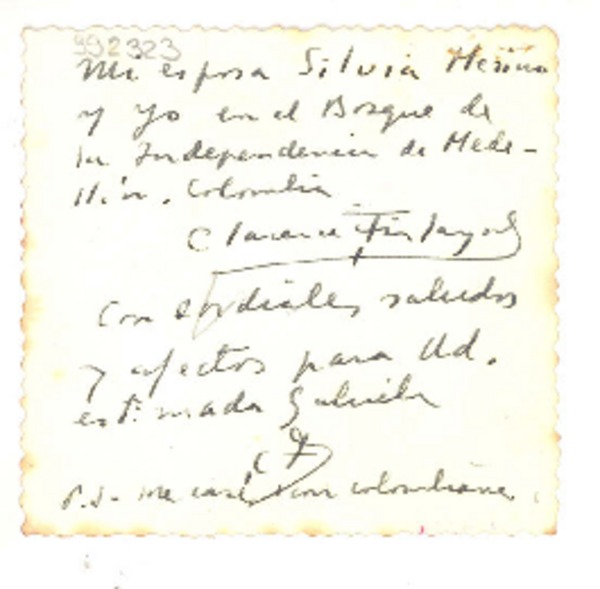 992323
Mi esposa Silvia Merino
y yo en el Bosque de
la Independencia de Mede-
llín, Colombia
Clarence Finlayson
Con cordiales saludos
y afectos para Ud.
estimada Gabriela
CF
P.S. - Me casé con colombiana.